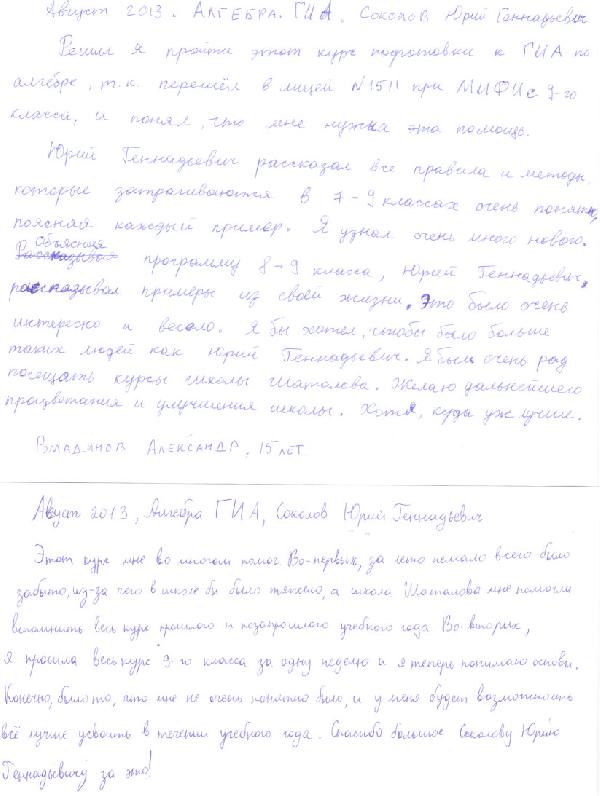 Август 2013. Алгебра. ГИА. Соколов Юрий Геннадьевич
Решил я пройти этот курс подготовки к ГИА по
алгебре, т.к. перешёл в лицей №1511 при МИФИ с 9-го
класса, и понял, что мне нужна эта помощь.
Юрий Геннадьевич рассказал все правила и методы,
которые затрагиваются в 7-9 классах очень понятно,
поясняя каждый пример. Я узнал очень много нового.
Объясняя программу 8-9 класса, Юрий Геннадьевич,
рассказывал примеры из своей жизни. Это было очень
интересно и весело. Я бы хотел, чтобы было больше
таких людей как Юрий Геннадьевич. Я был очень рад
посещать курсы школы Шаталова. Желаю дальнейшего
процветания и улучшения школы. Хотя, куда уж лучше.
Александр, 15 лет
Август 2013, Алгебра ГИА, Соколов Юрий Геннадьевич
Этот курс мне во многом помог. Во-первых, за лето немало всего было
забыто, из-за чего в школе бы было тяжело, а школа Шаталова мне помогла
вспомнить весь курс прошлого и позапрошлого учебного года. Во-вторых,
я прошла весь курс 9-го класса за одну неделю и я теперь понимаю основы.
Конечно, было то, что мне не очень понятно было, и у меня будет возможность
всё лучше усвоить в течении учебного года. Спасибо большое Соколову Юрию
Геннадьевичу за это!